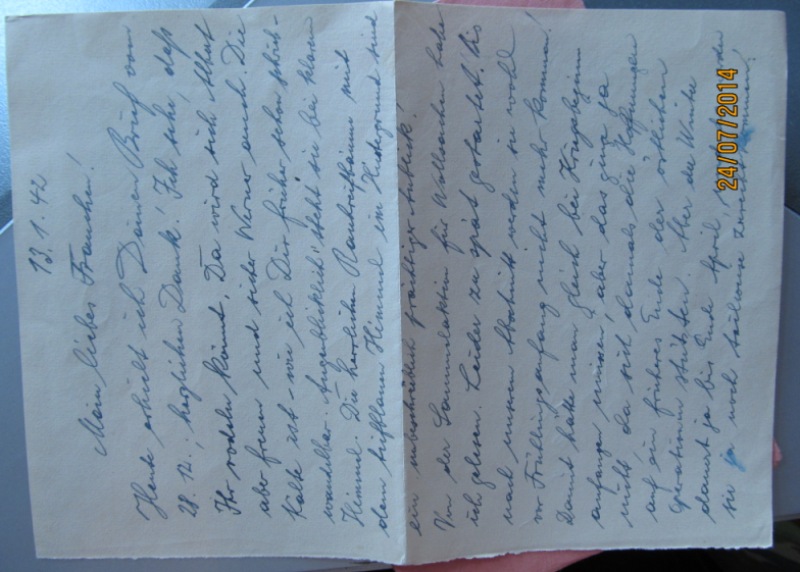 13.1.42
Mein liebes Frauchen!
Heute erhielt ich Deinen Brief vom
28.12., herzlichen Dank! Ich sehe, daß
Ihr rodeln könnt. Da wird sich Albert
aber freuen und sicher Werner auch. Die
Kälte ist - wie ich Dir früher schon schrieb -
wandelbar. Augenblicklich steht sie bei klarem
Himmel. Die herrlichen Rauhreifbäume mit
dem tiefblauen Himmel im Hintergrund sind
ein unbeschreiblich prächtiger Anblick!
Von der Sammelaktion für Wollsachen habe
ich gelesen. Leider zu spät gestartet. Bis
nach unserem Abschnitt werden sie wohl
vor Frühlingsanfang nicht mehr kommen!
Damit hätte man gleich bei Kriegsbeginn
anfangen müssen, aber das ging ja
nicht, da sich damals die Hoffnungen
auf ein frühes Ende der östlichen
Operationen stützten. Aber der Winter
dauert ja bis Ende April,
sie ja noch teilweise zurecht kommen!
24/07/2014